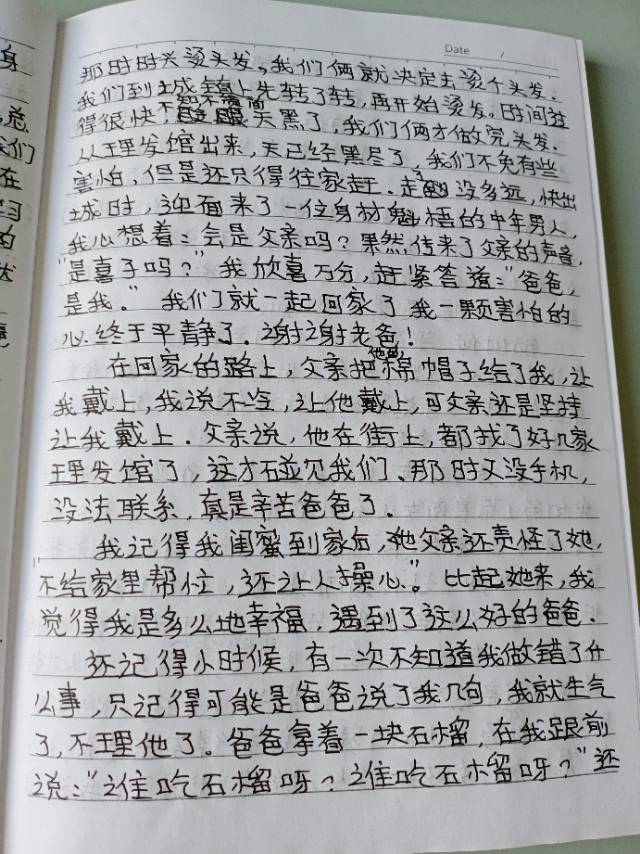 Date /
那时时兴烫头发,我们俩就决定去烫个头发.
我们到城镇上先转了转,再开始烫发。时间过
得很快,不知不觉间天黑了,我们俩才做完头发.
从理发馆出来,天已经黑尽了,我们不免有些
害怕,但是还只得往家赶.走了没多远,快出
城时,迎面来了一位身材魁梧的中年男人,
我心想着:会是父亲吗?果然传来了父亲的声音,
"是喜子吗?"我欣喜万分,赶紧答道:"爸爸,
是我。"我们就一起回家了我一颗害怕的
心终于平静了.谢谢老爸!
在回家的路上,父亲把他的棉帽子给了我,让
我戴上,我说不冷,让他戴上,可父亲还是坚持
让我戴上.父亲说,他在街上,都找了好几家
理发馆了,这才碰见我们、那时又没手机,
没法联系,真是辛苦爸爸了.
我记得我闺蜜到家后,她父亲还责怪了她,
"不给家里帮忙,还让人操心。"比起她来,我
觉得我是多么地幸福,遇到了这么好的爸爸.
还记得小时候,有一次不知道我做错了什
么事,只记得可能是爸爸说了我几句,我就生气
了,不理他了。爸爸拿着一块石榴,在我跟前
说:"谁吃石榴呀?谁吃石榴呀?"还
身
总
我们
在
习
的